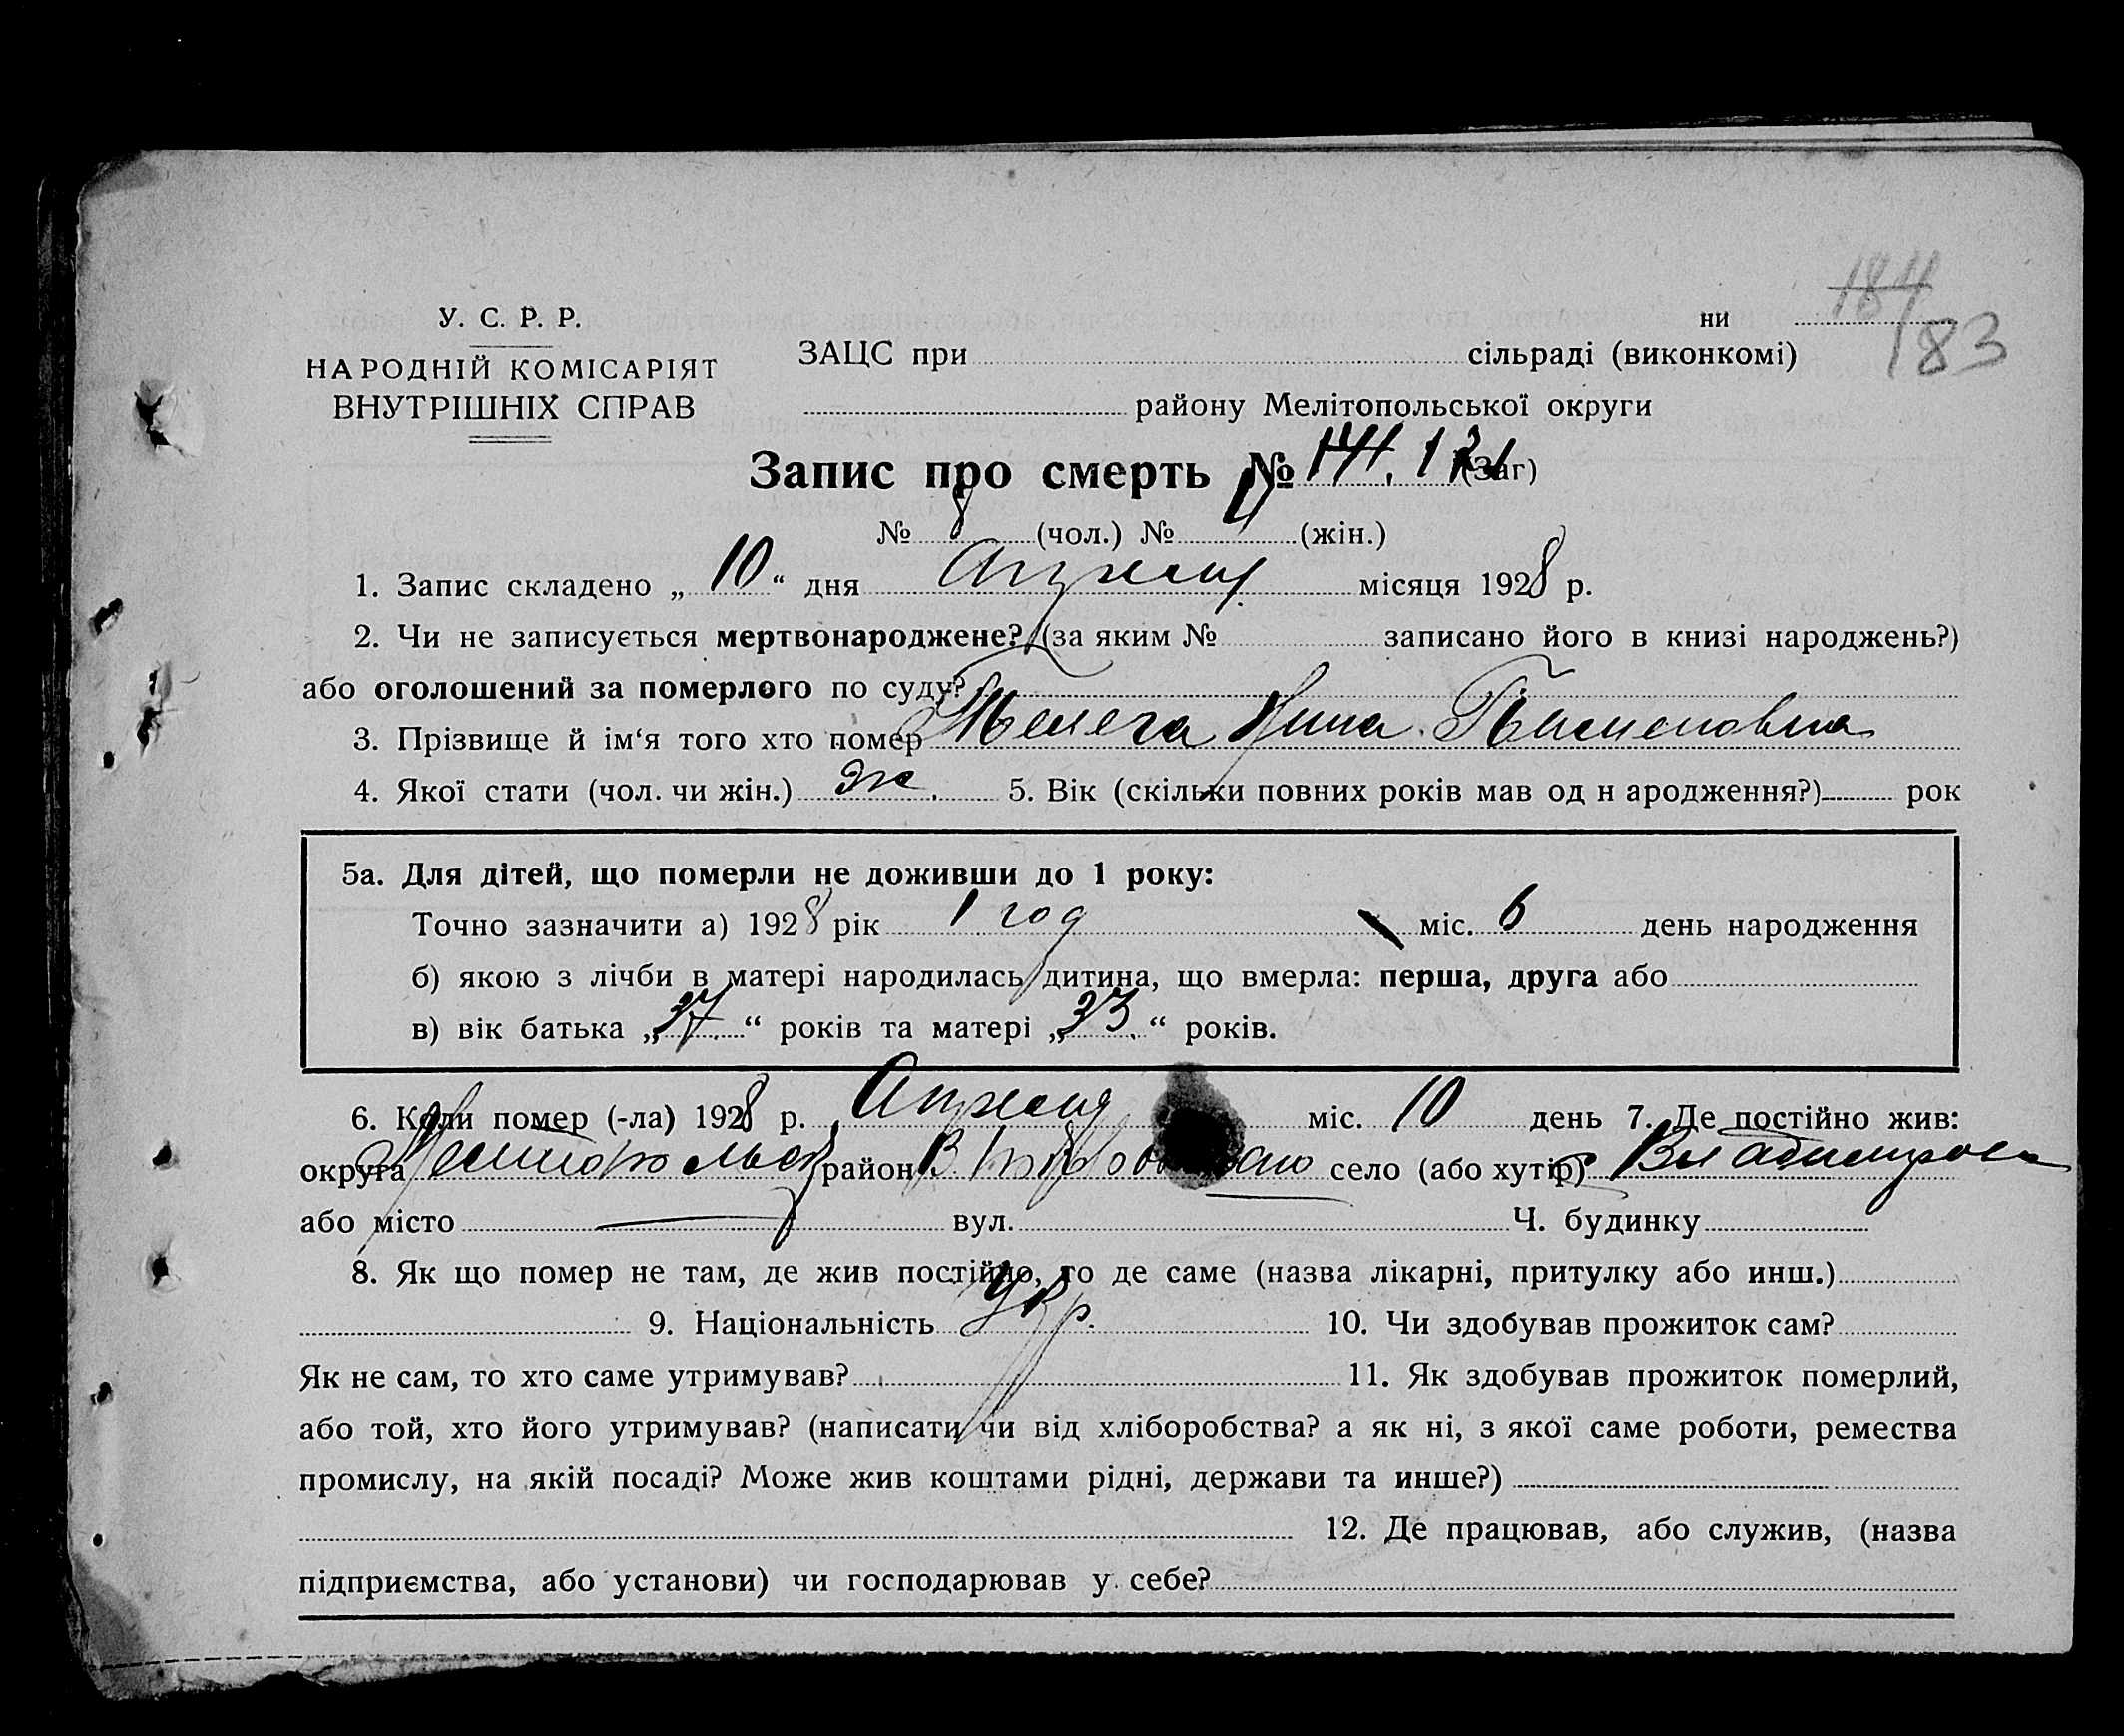 184
183
У. С. Р. Р.
НАРОДНІЙ КОМІСАРІЯТ
ВНУТРІШНІХ СПРАВ
ни
ЗАЦС при сільраді (виконкомі)
району Мелітопольської округи
Запис про смерть № (Заг)
№ 8 (чол.) № (жін.)
1. Запис складено „ 10 “ дня Апреля місяця 1928 р.
2. Чи не записується мертвонароджене? (за яким № записано його в книзі народжень?)
або оголошений за померлого по суду?
3. Прізвище й ім‘я того хто помер Телега Нина Пименовна
4. Якої стати (чол. чи жін.) ж. 5. Вік (скільки повних років мав од н ародження?) рок
5а. Для дітей, що померли не доживши до 1 року:
Точно зазначити а) 1928 рік 1 год міс. 6 день народження
б) якою з лічби в матері народилась дитина, що вмерла: перша, друга або
в) вік батька „ 37 “ років та матері „ 33 “ років.
6. Коли помер (-ла) 1928 р. Апреля міс. 10 день 7. Де постійно жив:
округа район село (або хутір)
або місто вул. Ч. будинку
8. Як що помер не там, де жив постійно, то де саме (назва лікарні, притулку або инш.)
9. Національність Укр. 10. Чи здобував прожиток сам?
Як не сам, то хто саме утримував? 11. Як здобував прожиток померлий,
або той, хто його утримував? (написати чи від хліборобства? а як ні, з якої саме роботи, ремества
промислу, на якій посаді? Може жив коштами рідні, держави та инше?)
12. Де працював, або служив, (назва
підприємства, або установи) чи господарював у себе?